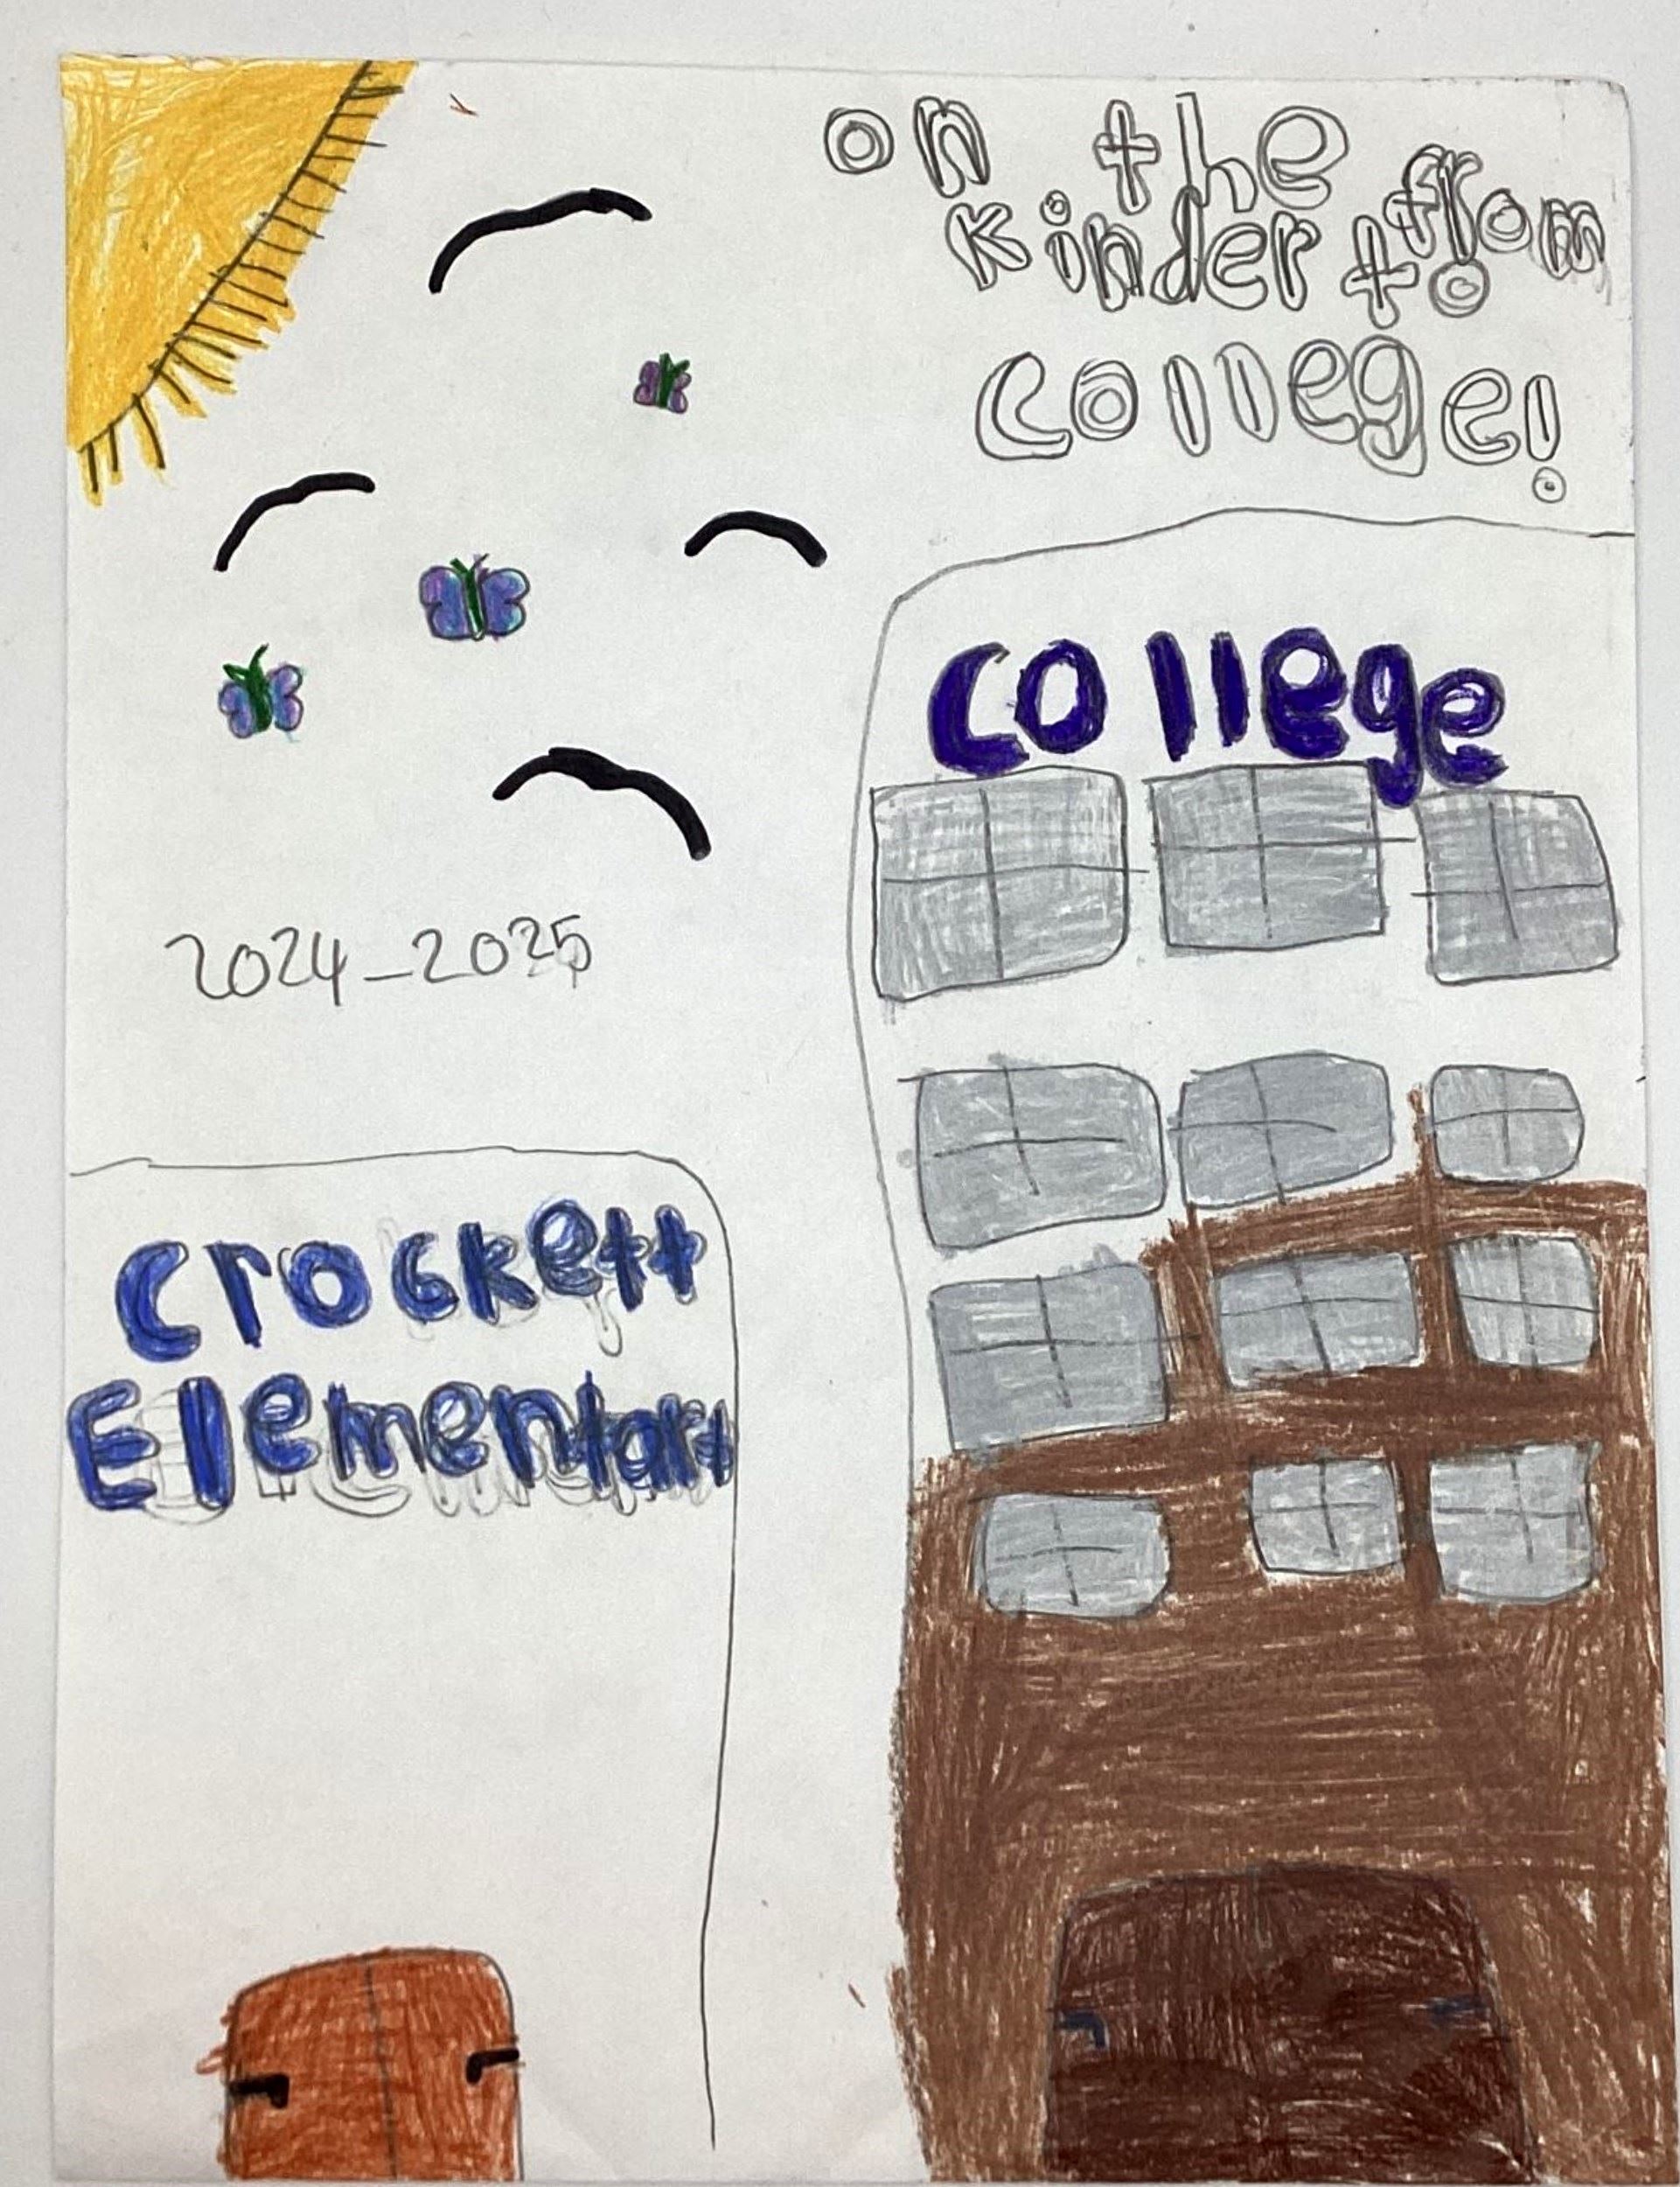 on the
from
kinder to
college!
college
2024-2025
Crockett
Elementary